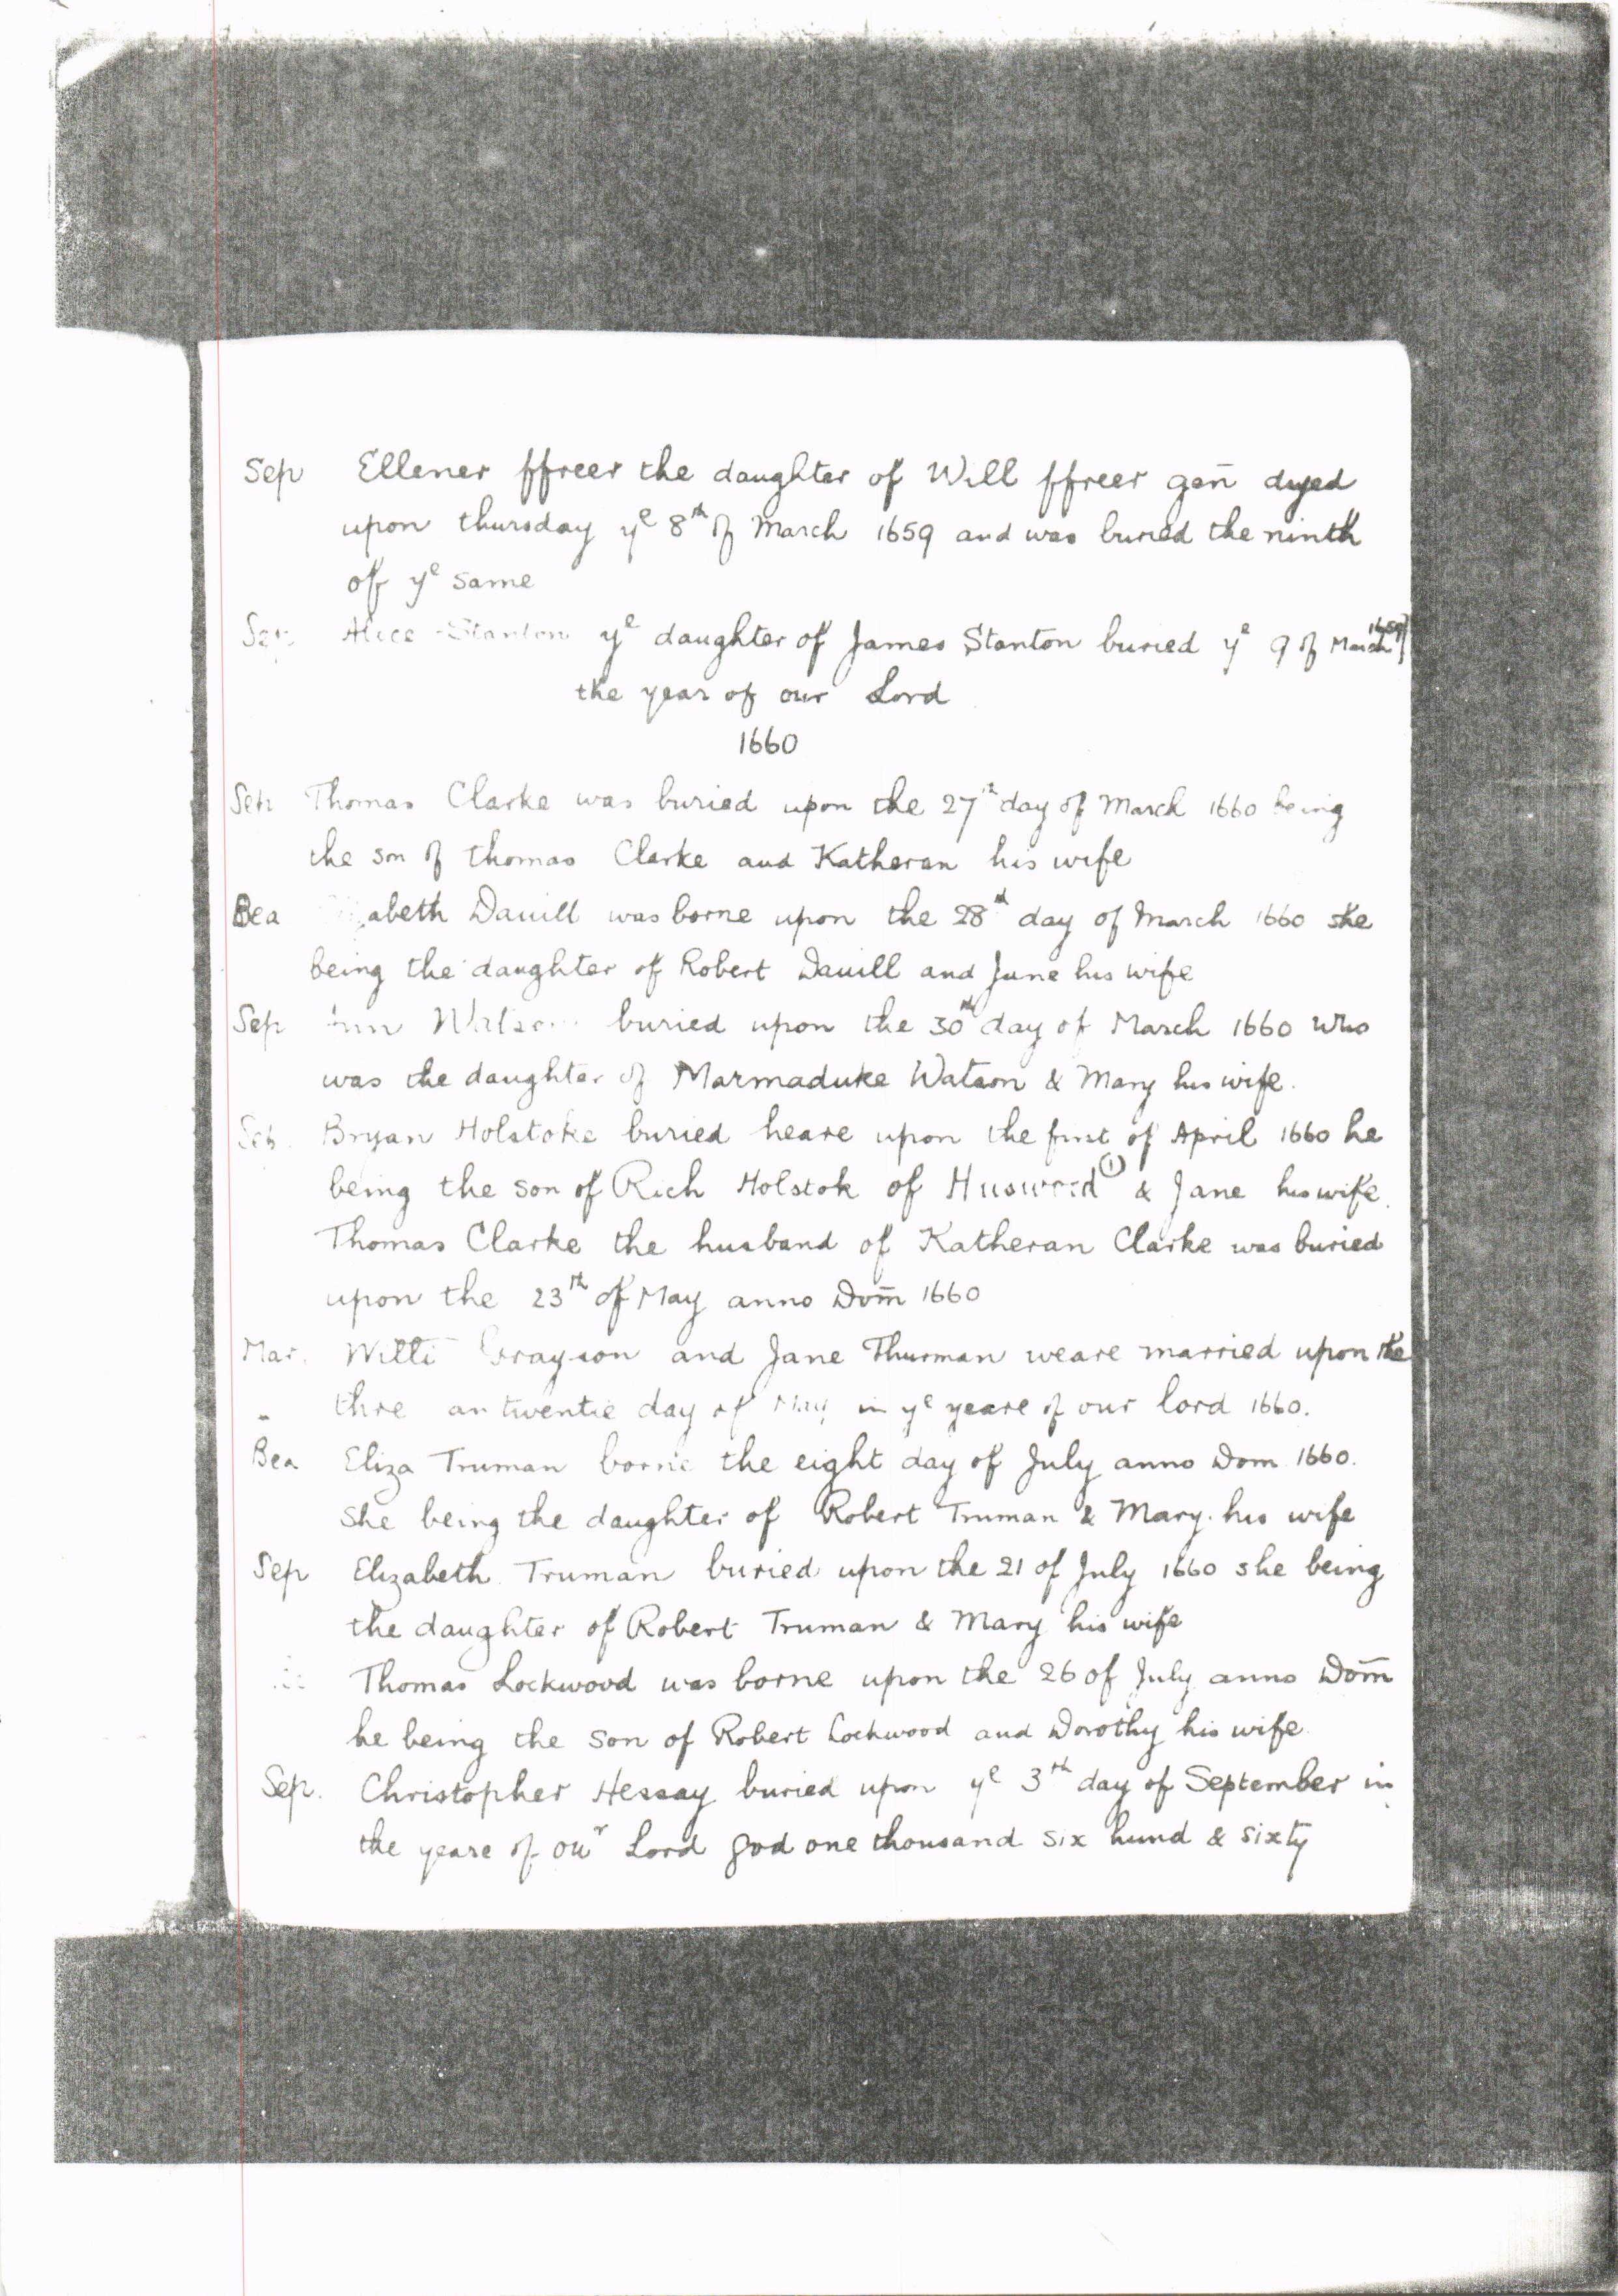 Sep Ellener ffreer the daughter of Will ffreer gen̄ dyed
upon thursday yᵉ 8ᵗʰ of March 1659 and was buried the ninth
of yᵉ same
Sep Alice Stanton yᵉ daughter of James Stanton buried yᵉ 9 of March 1659
the year of our Lord
1660
Sep Thomas Clarke was buried upon the 27ᵗʰ day of March 1660 being
the son of thomas Clarke and Katheran his wife
Bea abeth Dauill was borne upon the 28ᵗʰ day of March 1660 she
being the daughter of Robert Dauill and June his wife
Sep Ann Watson buried upon the 30ᵗʰ day of March 1660 who
was the daughter of Marmaduke Watson & Mary his wife.
Sep. Bryan Holstoke buried heare upon the first of April 1660 he
being the son of Rich Holstok of (1) & Jane his wife.
Thomas Clarke the husband of Katheran Clarke was buried
upon the 23ᵗʰ of May anno Dom̄ 1660
Mar. Willi Grayson and Jane Thurman weare married upon the
thre an twentie day of May in yᵉ yeare of our lord 1660.
Bea Eliza Truman borne the eight day of July anno Dom 1660.
She being the daughter of Robert Truman & Mary his wife
Sep Elizabeth Truman buried upon the 21 of July 1660 she being
the daughter of Robert Truman & Mary his wife
Thomas Lockwood was borne upon the 26 of July anno Dom̄
he being the son of Robert Lockwood and Dorothy his wife.
Sep. Christopher Hessay buried upon yᵉ 3ᵗʰ day of September in
the yeare of ouʳ Lord god one thousand six hund & sixty